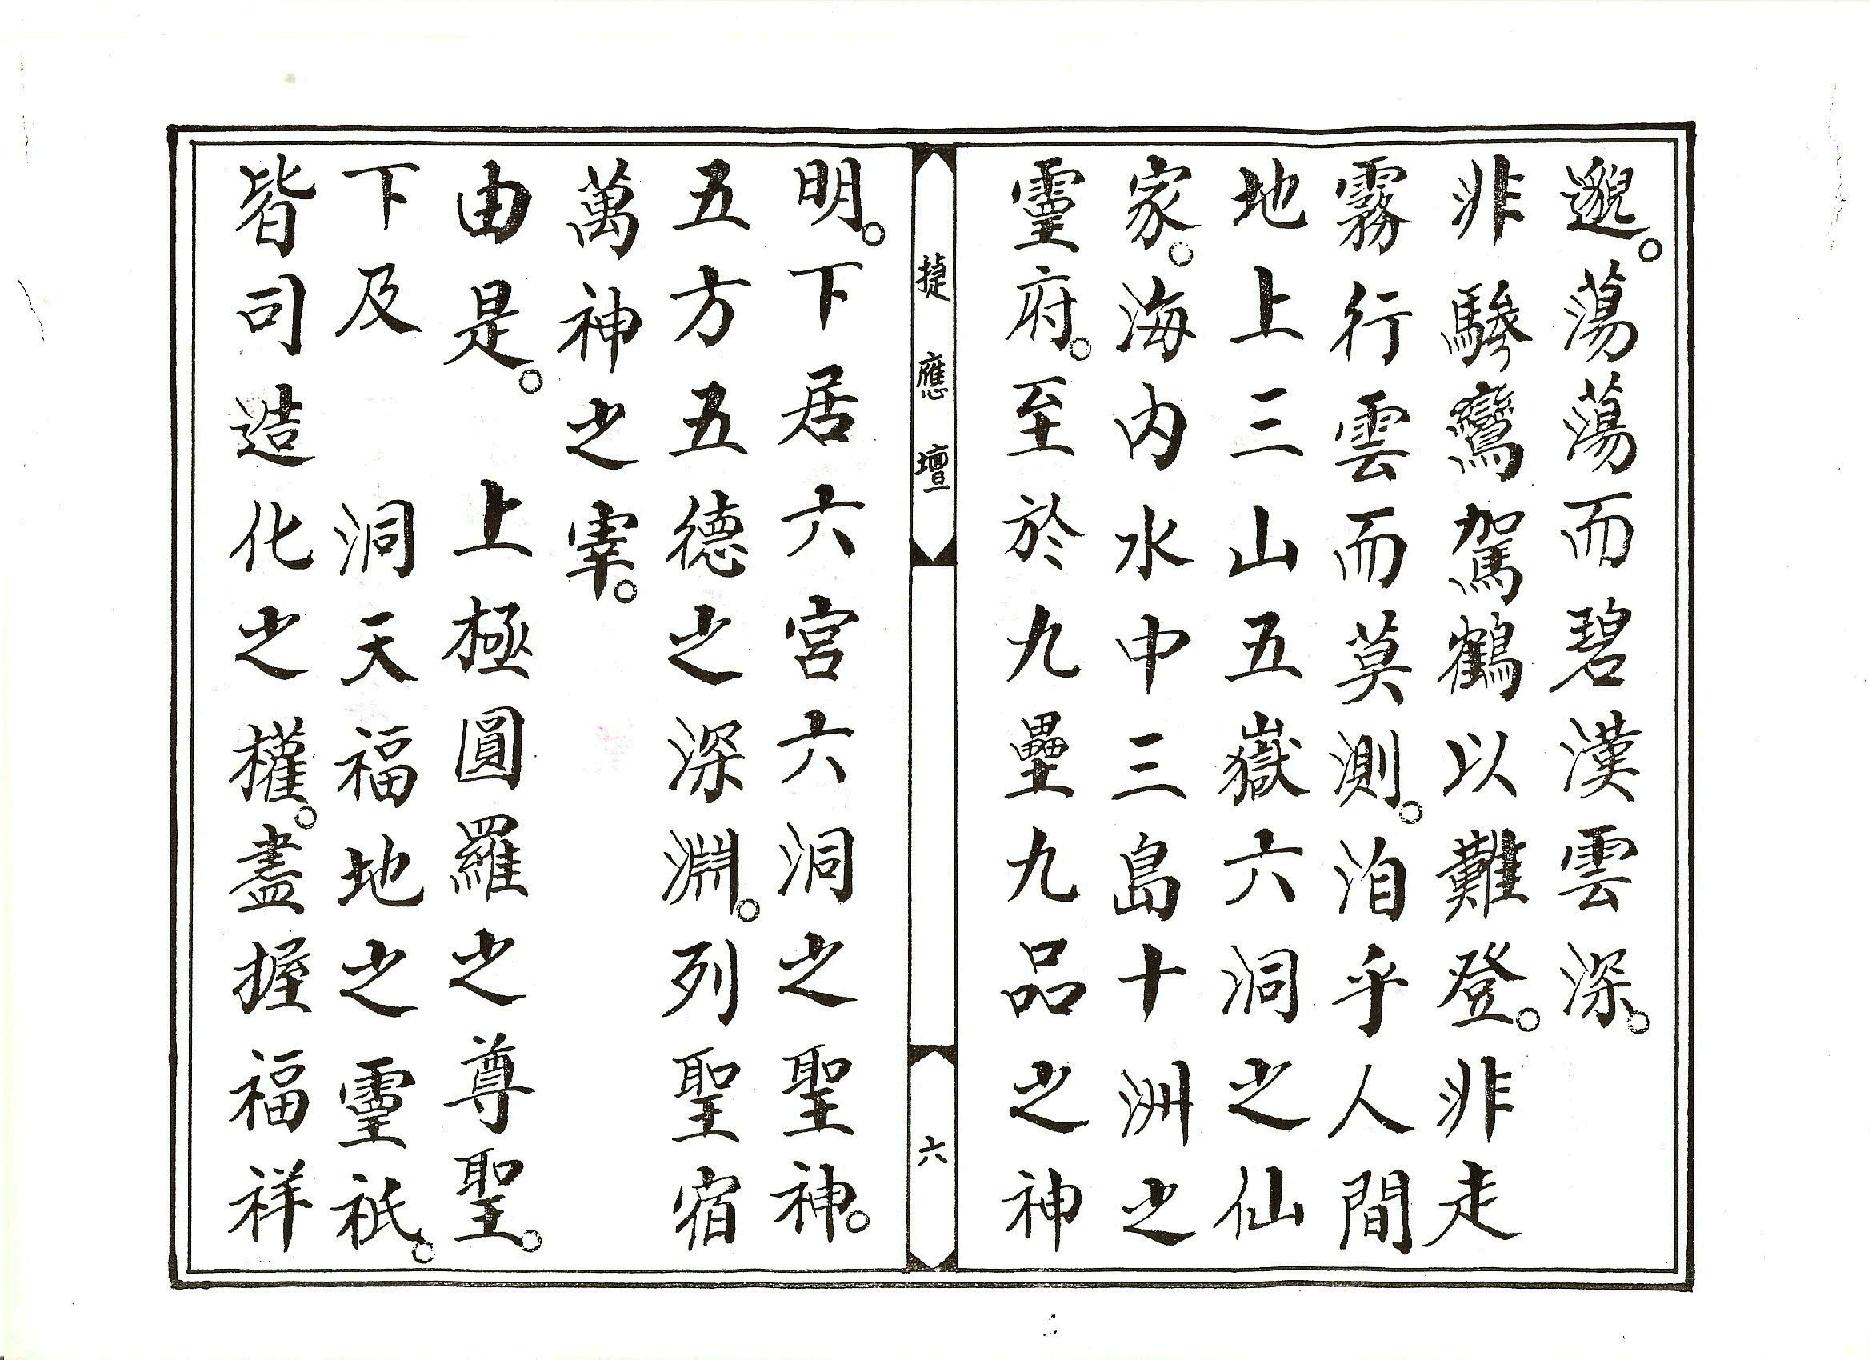 邈。蕩蕩而碧漢雲深。
非驂鸞駕鶴以難登。非走
霧行雲而莫測。洎乎人間
地上三山五嶽六洞之仙
家。海內水中三島十洲之
靈府。至於九壘九品之神
捷應壇
六
明。下居六宮六洞之聖神。
五方五德之深淵。列聖宿
萬神之宰。
由是。 上極圓羅之尊聖。
下及 洞天福地之靈祇。
皆司造化之權。盡握福祥